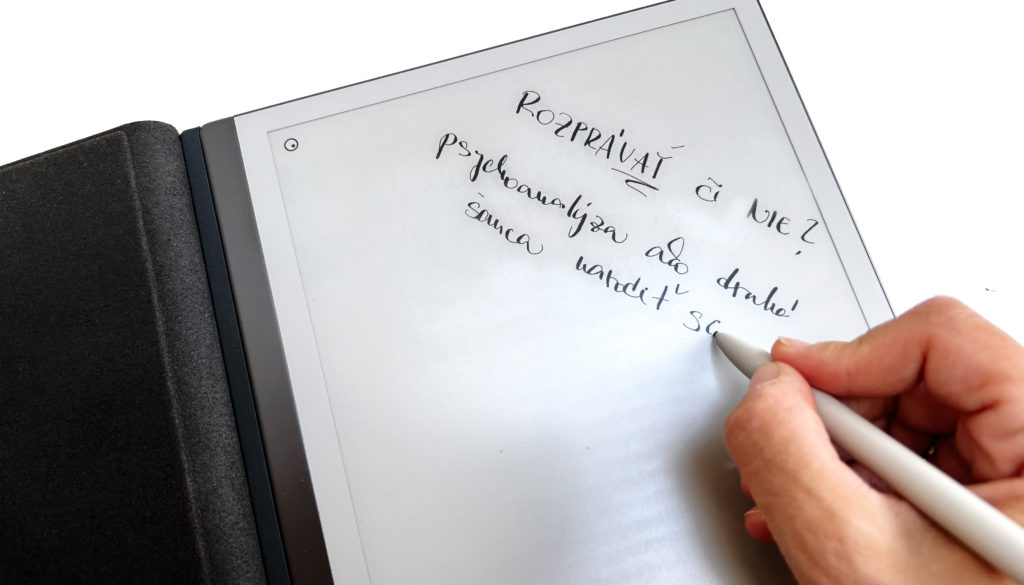 ROZPRÁVAŤ či NIE?
psychoanalýza ako druhá
šanca narodiť sa